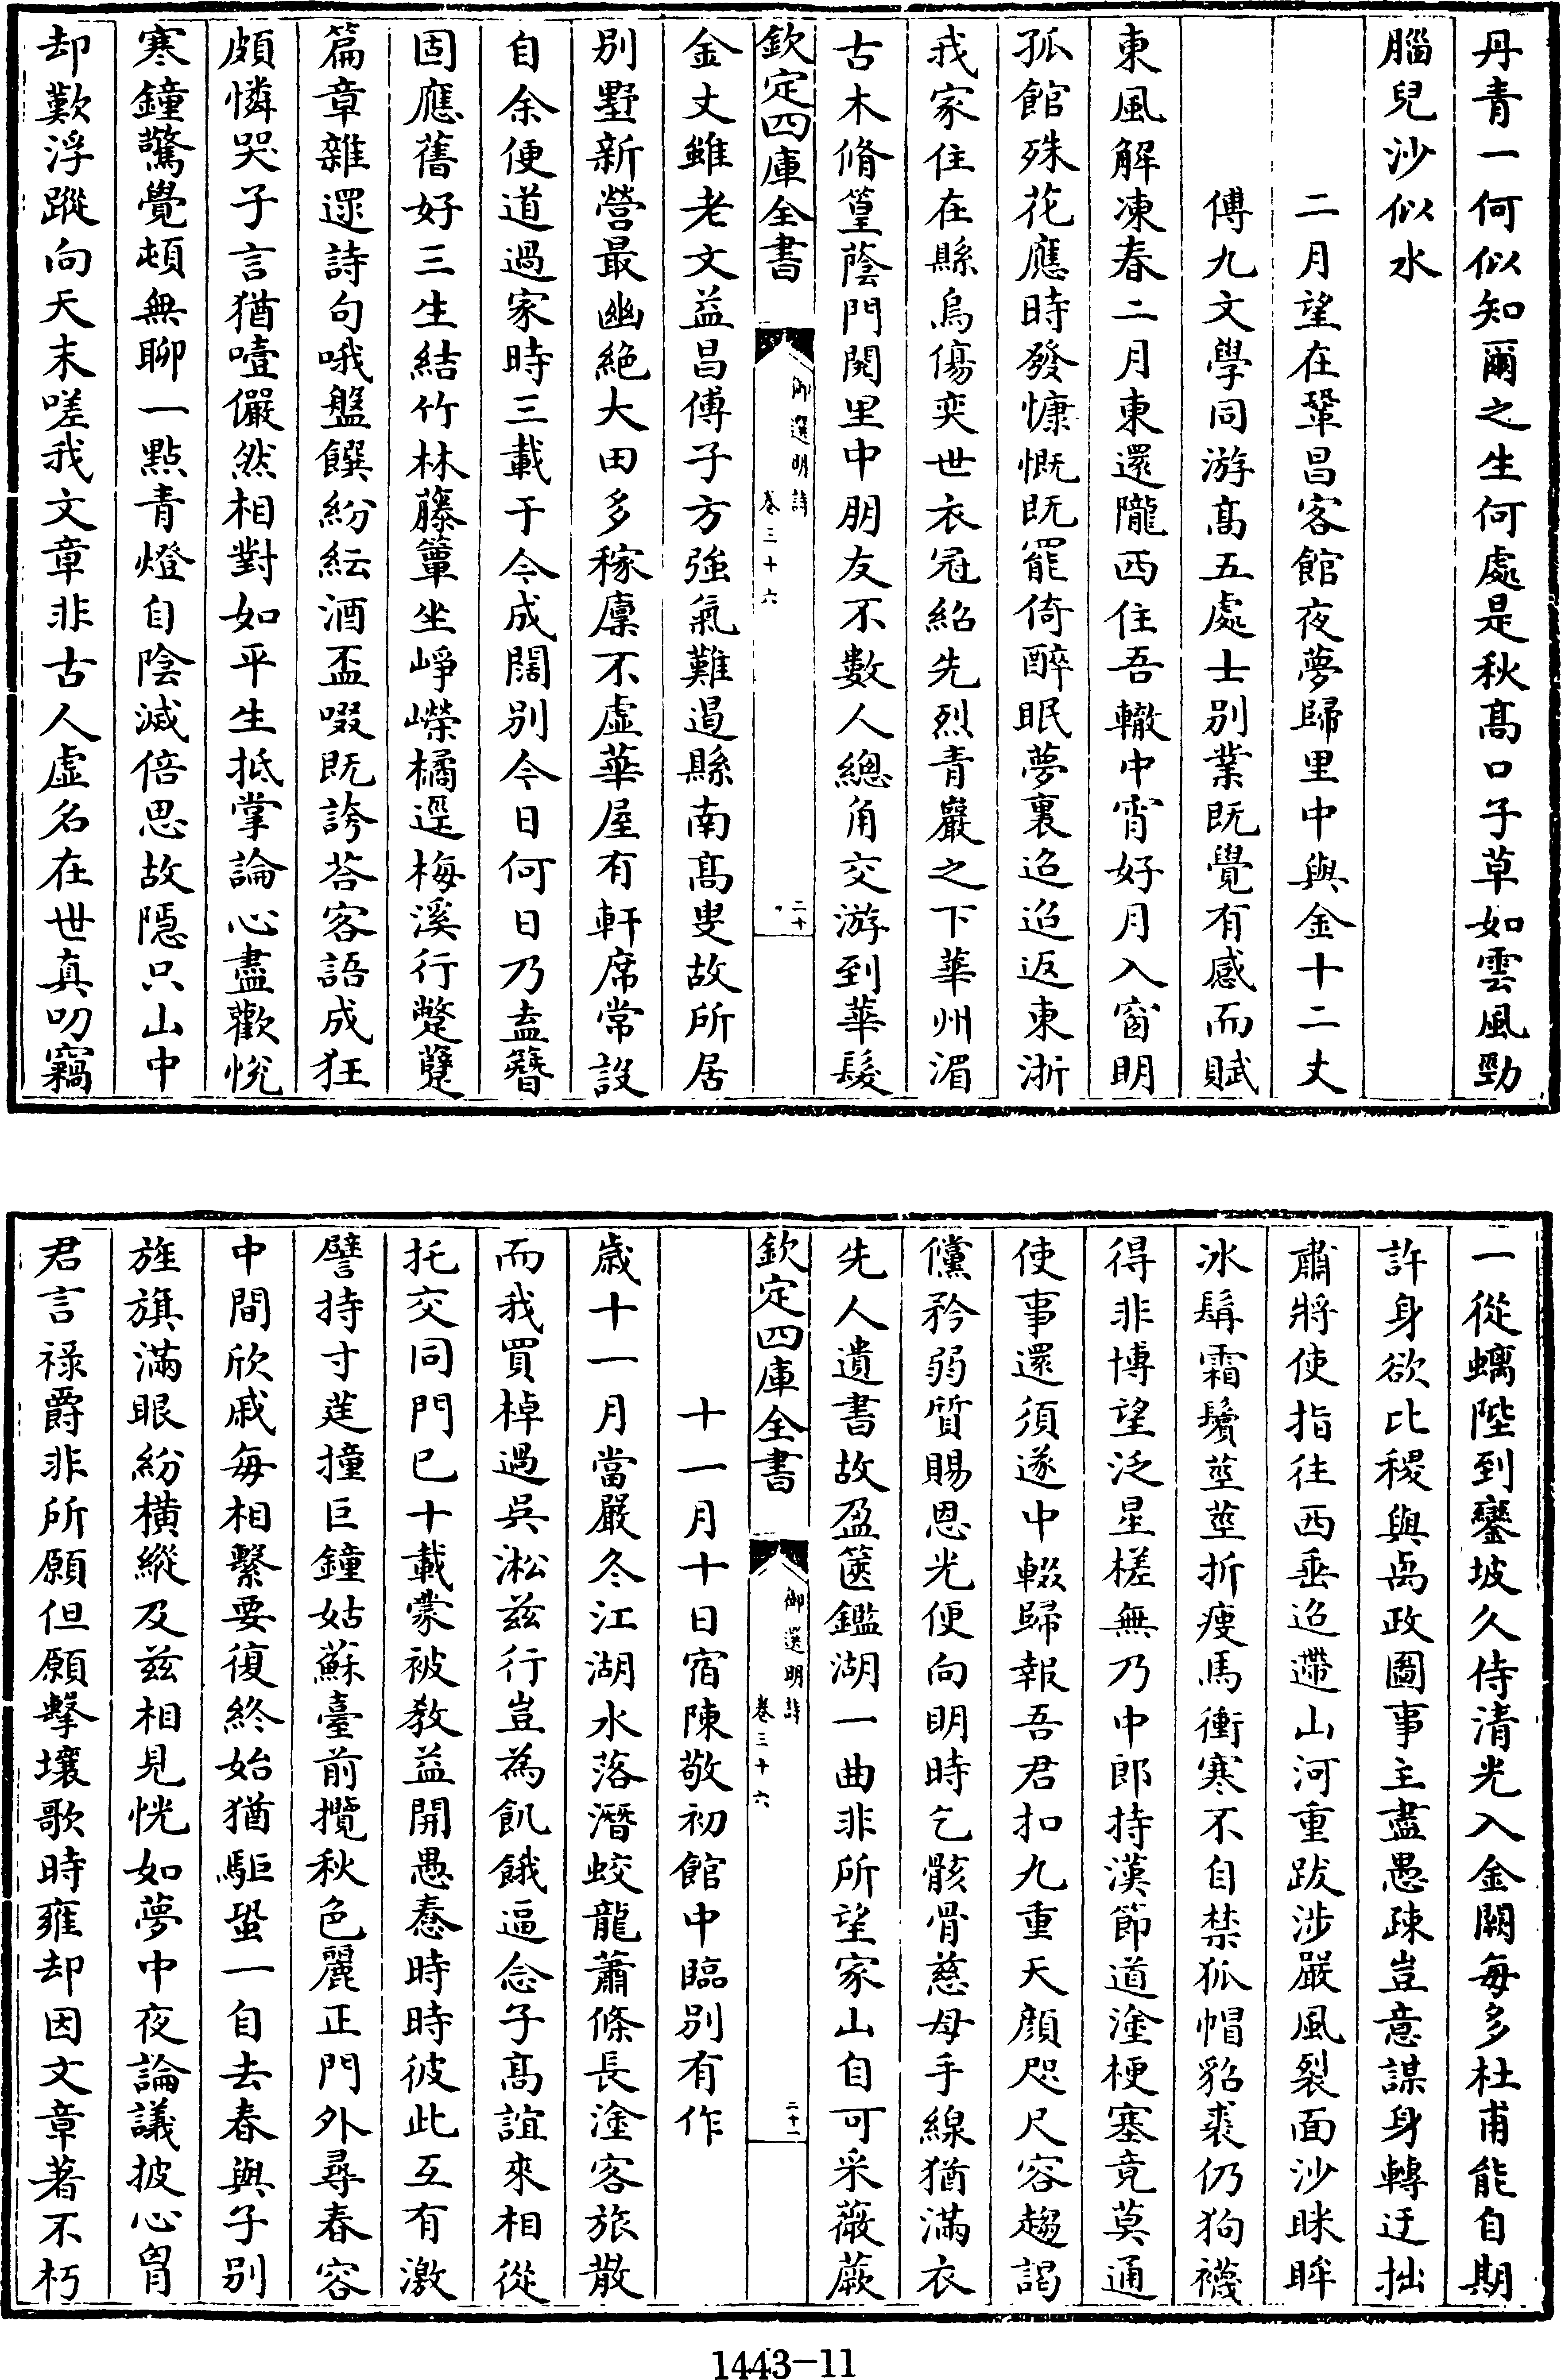 丹青一何似知爾之生何處是秋髙口子草如雲風勁
腦兒沙似水
二月望在鞏昌客館夜夢歸里中與金十二丈
傅九文學同游髙五處士别業既覺有感而賦
東風解凍春二月東還隴西住吾轍中宵好月入窗明
孤館殊花應時發慷慨既罷倚醉眠夢裏迢迢返東浙
我家住在縣烏傷奕世衣冠紹先烈青巖之下華州湄
古木脩篁蔭門閥里中朋友不數人總角交游到華髮
欽定四庫全書
御選明詩
卷三十六
二十
金丈雖老文益昌傅子方強氣難遏縣南髙叟故所居
别墅新營最幽絶大田多稼廩不虚華屋有軒席常設
自余便道過家時三載于今成闊别今日何日乃盍簪
固應舊好三生結竹林藤簟坐崢嶸橘逕梅溪行蹩躠
篇章雜還詩句哦盤饌紛紜酒盃啜既誇荅客語成狂
頗憐哭子言猶噎儼然相對如平生抵掌論心盡歡悦
寒鐘驚覺頓無聊一點青燈自陰滅倍思故隱只山中
却歎浮蹤向天末嗟我文章非古人虚名在世真叨竊
一從螭陛到鑾坡久侍清光入金闕每多杜甫能自期
許身欲比稷與卨政圖事主盡愚疎豈意謀身轉迂拙
肅將使指往西垂迢遰山河重跋涉嚴風裂面沙眯眸
冰鬅霜鬢莖莖折瘦馬衝寒不自禁狐帽貂裘仍狗襪
得非博望泛星槎無乃中郎持漢節道塗梗塞竟莫通
使事還須遂中輟歸報吾君扣九重天顔咫尺容趨謁
儻矜弱質賜恩光便向明時乞骸骨慈母手線猶滿衣
先人遺書故盈篋鑑湖一曲非所望家山自可采薇蕨
欽定四庫全書
御選明詩
卷三十六
二十一
十一月十日宿陳敬初館中臨别有作
歳十一月當嚴冬江湖水落潛蛟龍蕭條長塗客旅散
而我買棹過吳淞兹行豈為飢餓逼念子髙誼來相從
托交同門已十載蒙被教益開愚惷時時彼此互有激
譬持寸莛撞巨鐘姑蘇臺前攬秋色麗正門外尋春容
中間欣戚每相繫要復終始猶駏蛩一自去春與子别
旌旗滿眼紛横縱及兹相見恍如夢中夜論議披心胷
君言禄爵非所願但願擊壤歌時雍却因文章著不朽
1443-11